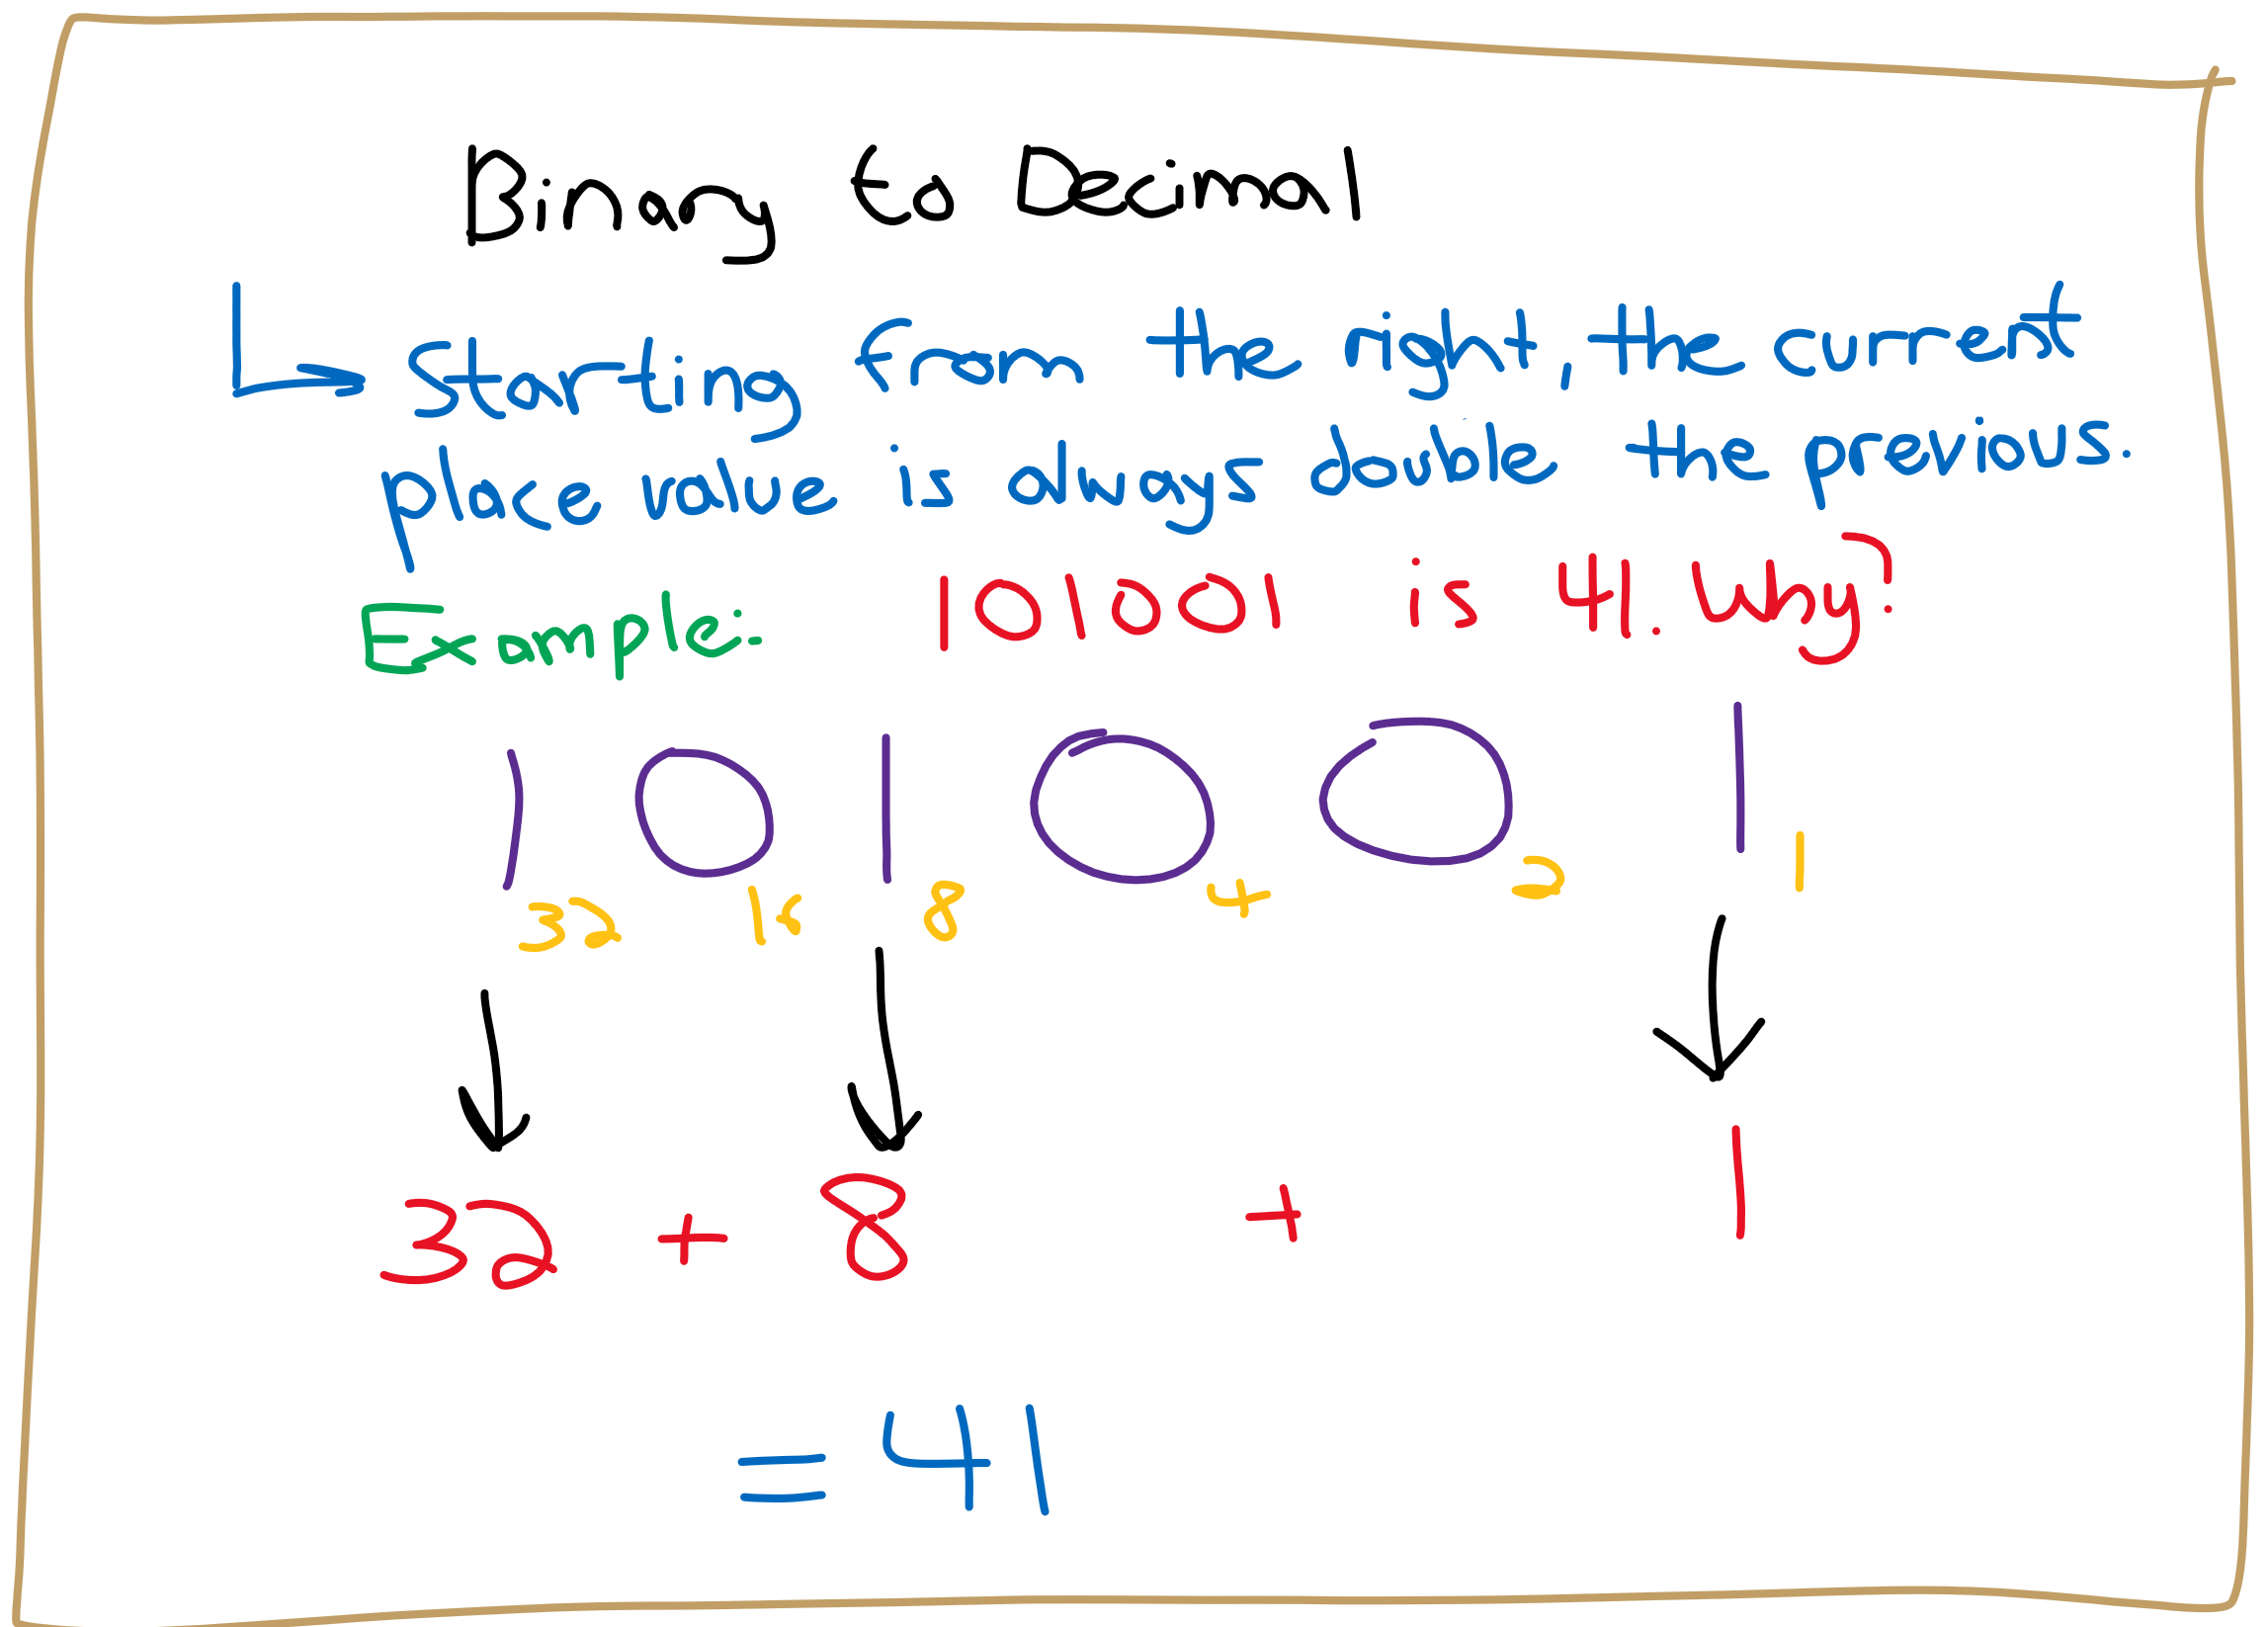 Binary to Decimal
starting from the right, the current
place value is always double the previous.
Example: 101001 is 41. Why?
1 0 1 0 0 1
32 16 8 4 2 1
32 + 8 + 1
= 41